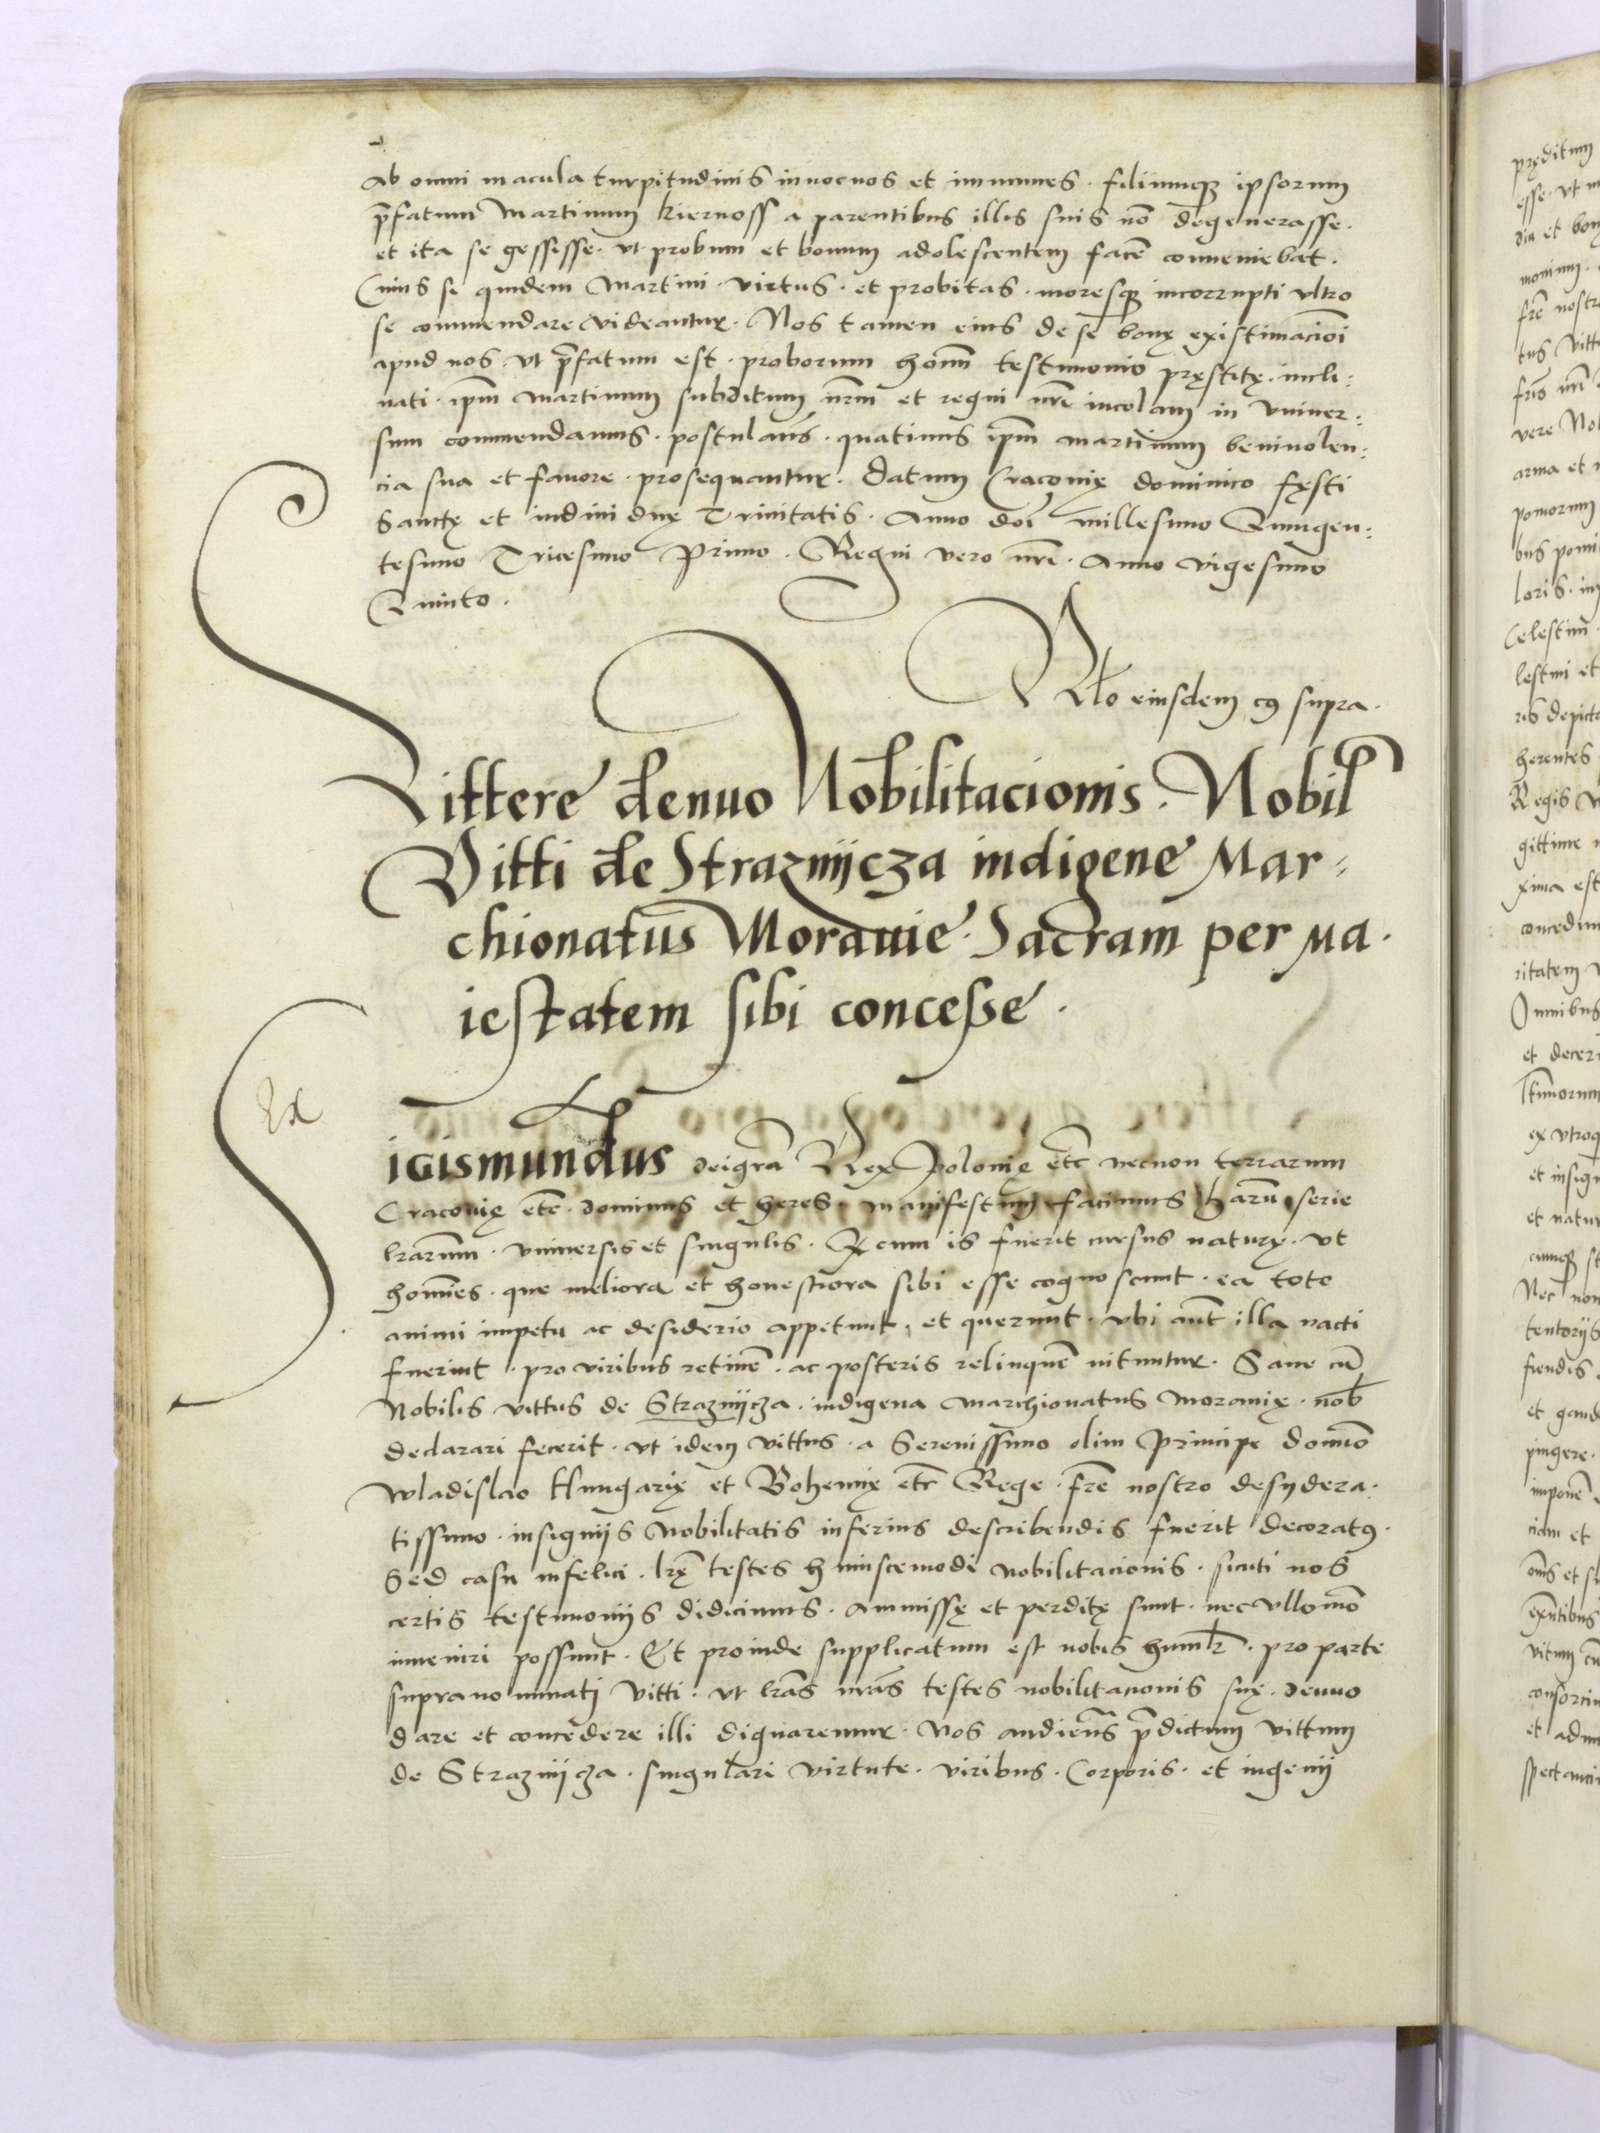 Ab omni macula turpitudinis innocuos et immunes. filiumqꝫ ipsorum
p̃fatum Martinum Kiernoss a parentibus illis suis nõ degenerasse.
et ita se gessisse. ut probum et bonum adolescentem facẽ conveniebat.
Cuius se quidem Martini. virtus. et probitas. moresqꝫ incorrupti ultro
se commendare videantur. Nos tamen eius de se bonę existimacioĩ
apud nos. ut p̃fatum est. proborum hoĩm testimonio pręstitę. incli:
nati. ip̃m Martinum subditum nr̃m et regni nr̃i incolam in univer:
sum commendamus. postulañs. quatinus ip̃m Martinum benivolen:
cia sua et favore. prosequantur. Datum Cracovię dominico fęsti
Sanctę et individuę Trinitatis. Anno doĩ Millesimo Quingen:
tesimo Tricesimo Primo. Regni vero nr̃i. Anno vigesimo
Quinto.
Rl̃o eiusdem cꝰ supra.
Littere denuo Nobilitacionis. Nobil
Vitti de Straznijcza indigene Mar=
chionatus Moravie. Sacram per Ma.
iestatem sibi concesse.
Ex
Sigismundus dei gr̃a Rex Polonię etc̃ necnon terrarum
Cracovię etc̃. dominus et heres. manifestum facimus harũ serie
lr̃arum. universis et singulis. Q cum is fuerit cursus naturę. ut
homĩes. que meliora et honestiora sibi esse cognoscunt. ea toto
animi impetu ac desiderio appetunt, et querunt. ubi aut̃ illa nacti
fuerint. pro viribus retinẽ. ac posteris relinquẽ nituntur. Sane cũ
Nobilis vittus de Straznijcza. indigena Marchionatus Moravię. nob̃
declarari fecerit. ut idem vittus. a Serenissimo olim Principe domiõ
Wladislao Hungarię et Bohemię etc̃ Rege. fr̃e nostro desydera.
tissimo. insignijs Nobilitatis inferius describendis fuerit decoratꝰ.
Sed casu infelici. lr̃ę testes huiuscemodi nobilitacionis. sicuti nos
certis testimonijs didicimus. ammissę et perditę sunt. nec ullo mõ
inveniri possunt. Et proinde supplicatum est nobis humlr̃. pro parte
supranominatj Vitti. ut lr̃as nr̃as testes nobilitationis suę. denuo
dare et concędere illi dignaremur. Nos audieñs p̃dictum Vittum
de Straznijcza. singulari virtute. viribus. Corporis. et ingenij